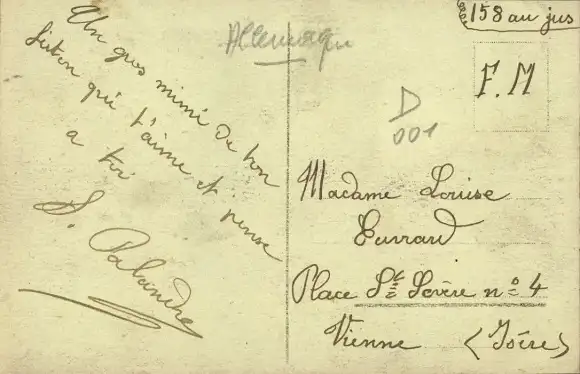 Un gros mimi de ton
fiston qui t'aime et pense
a toi
S. Palandre
Allemagne
158 au jus
F.M
D
001
Madame Louise
Place St Sévère n° 4
Vienne (Isère)